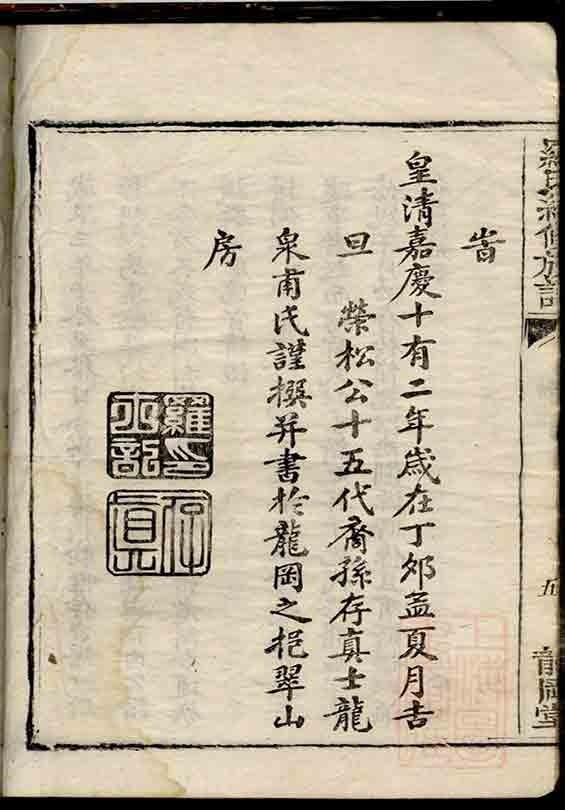 羅氏續修族譜
五
龍岡堂
旹
皇清嘉慶十有二年歲在丁夘孟夏月吉
旦　榮松公十五代裔孫存真士龍
泉甫氏謹撰并書於龍岡之挹翠山
房
羅印
士龍
存
真